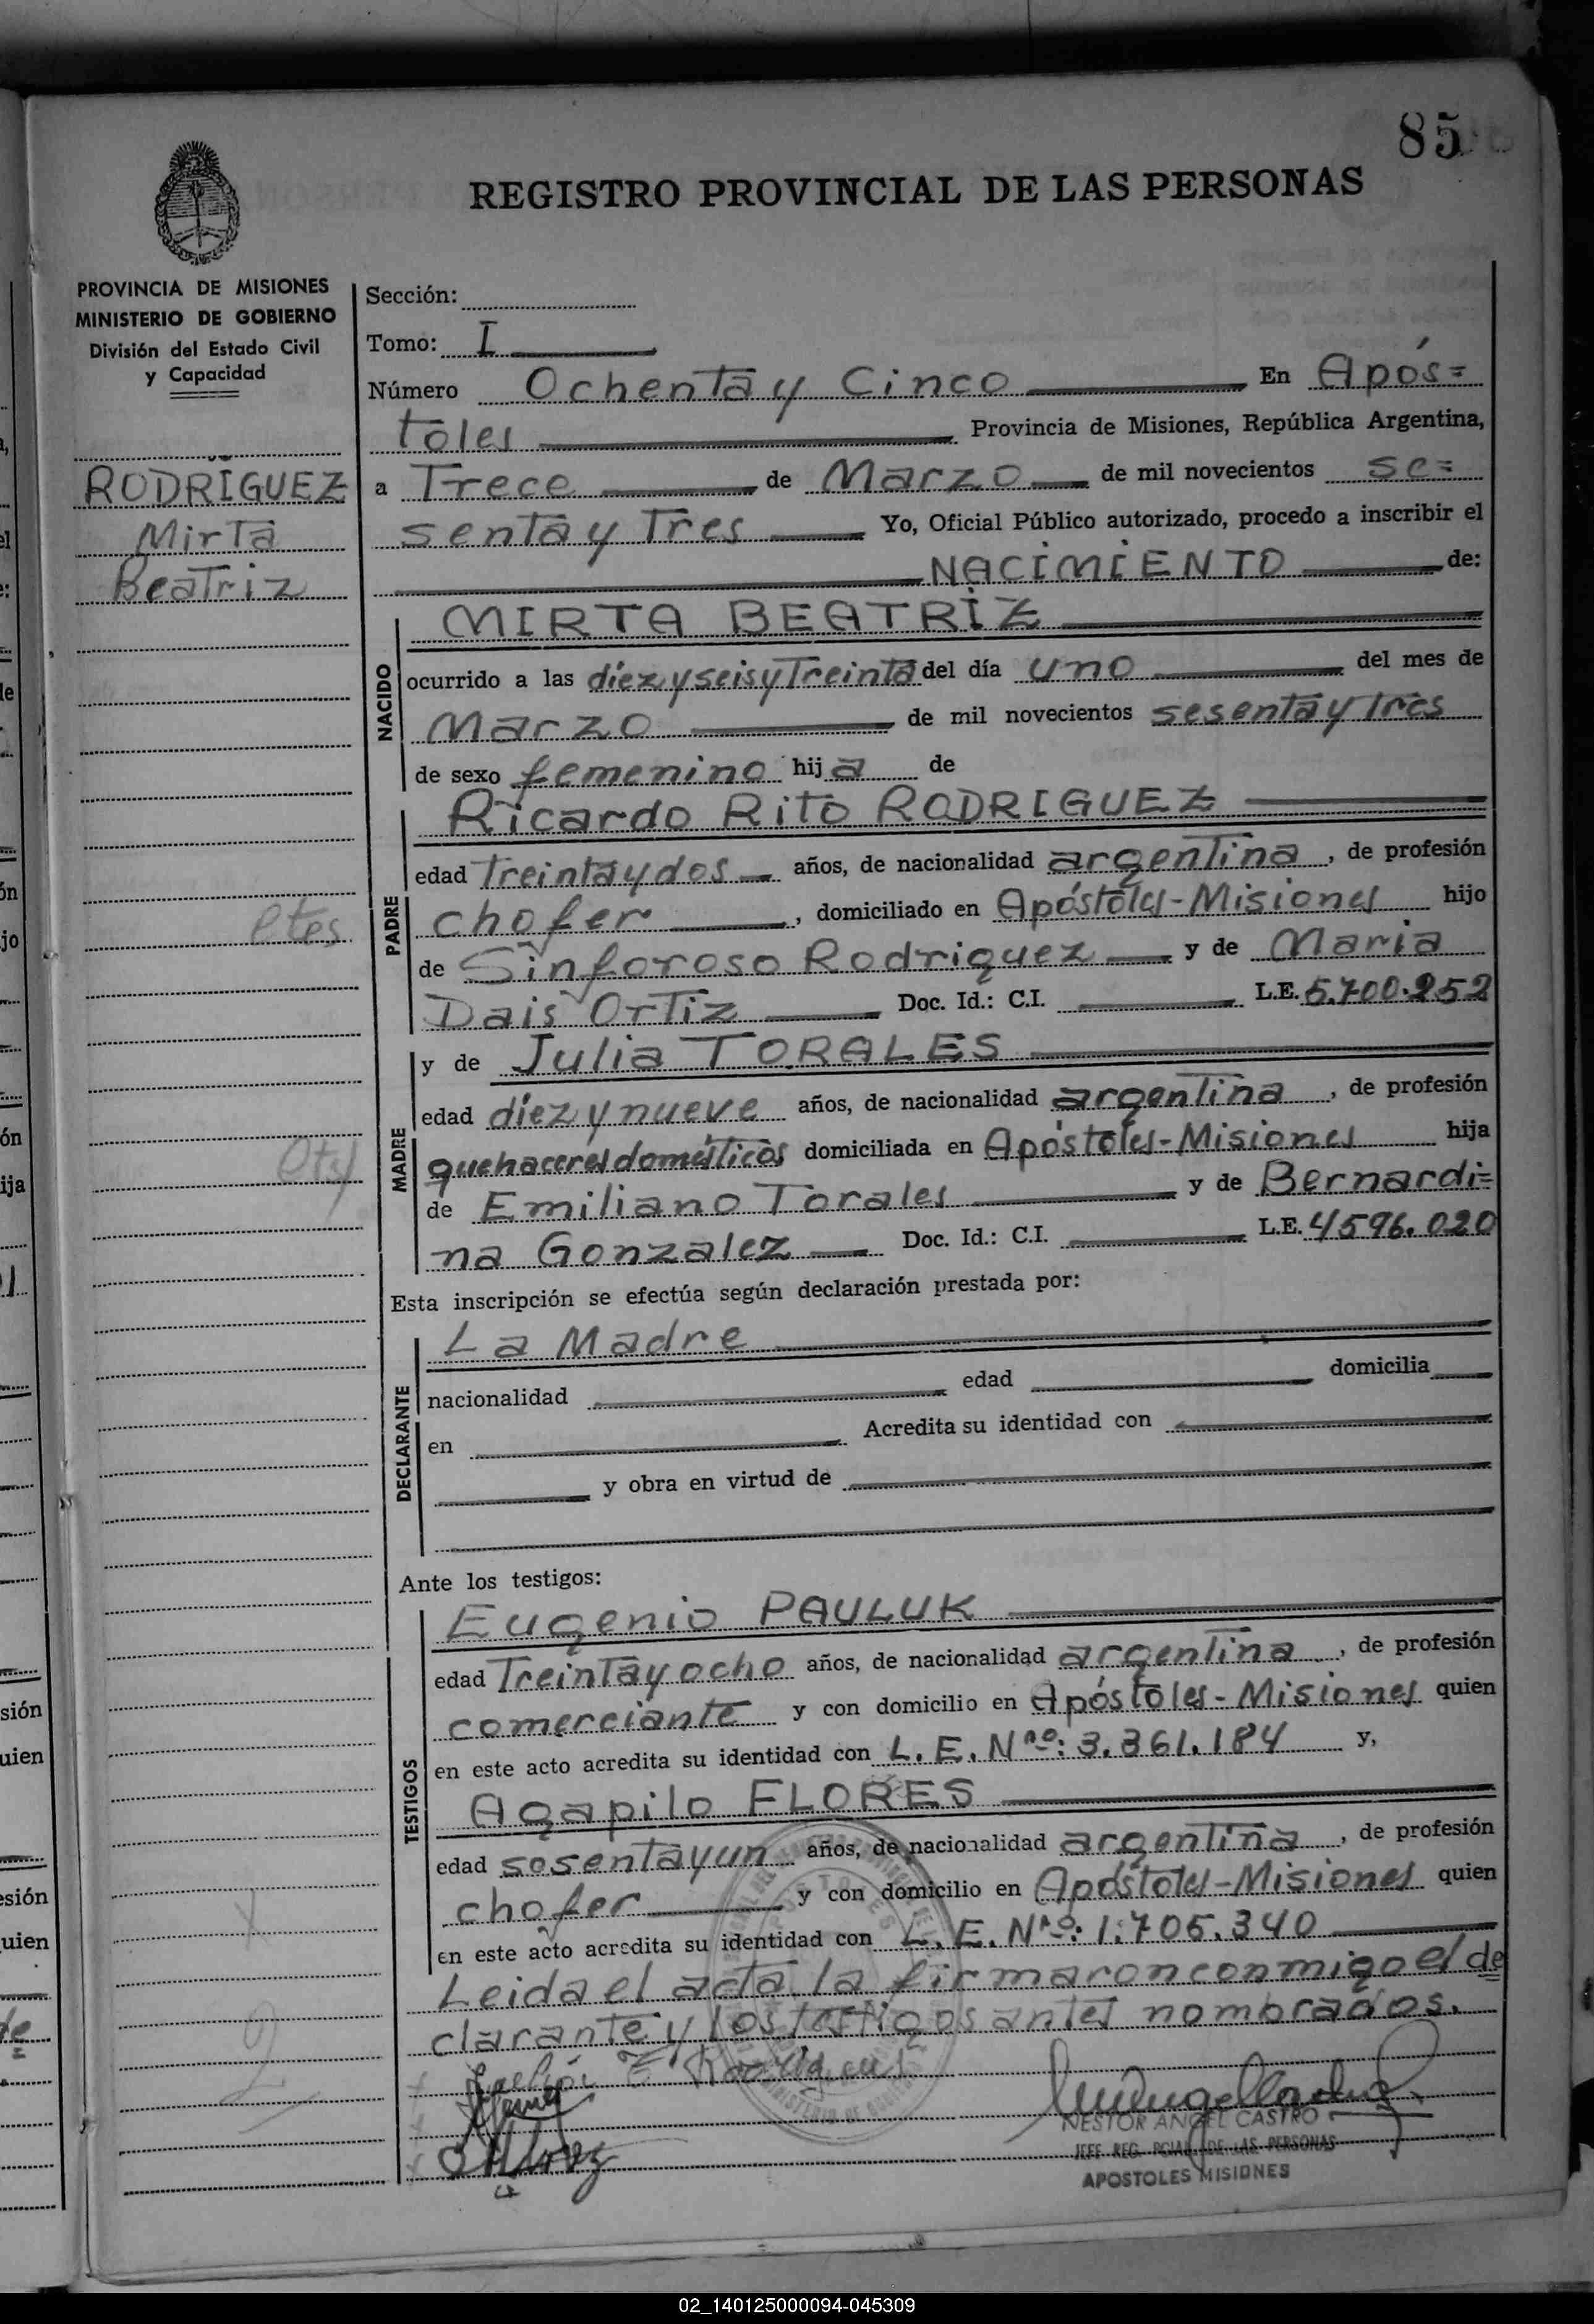 85
REGISTRO PROVINCIAL DE LAS PERSONAS
PROVINCIA DE MISIONES
MINISTERIO DE GOBIERNO
División del Estado Civil
y Capacidad
RODRÍGUEZ
Mirta
Beatriz
etes
Sección:
Tomo: I
Número Ochenta y Cinco En Após=
toles Provincia de Misiones, República Argentina,
a Trece de Marzo de mil novecientos se=
senta y Tres Yo, Oficial Público autorizado, procedo a inscribir el
NACIMIENTO de:
NACIDO
MIRTA BEATRIZ
ocurrido a las diez y seis y Treinta del día uno del mes de
Marzo de mil novecientos sesenta y Tres
de sexo femenino hija de
PADRE
Ricardo Rito RODRIGUEZ
edad Treinta y dos años, de nacionalidad argentina, de profesión
chofer, domiciliado en Apóstoles-Misiones hijo
de Sinforoso Rodriguez y de Maria
Dais Ortiz Doc. Id.: C.I. L.E. 5.700.252
MADRE
y de Julia TORALES
edad díez y nueve años, de nacionalidad argentina, de profesión
quehaceres domésticos domiciliada en Apóstoles-Misiones hija
de Emiliano Torales y de Bernardi=
na Gonzalez Doc. Id.: C.I. L.E. 4596.020
Esta inscripción se efectúa según declaración prestada por:
DECLARANTE
La Madre
nacionalidad edad domicilia
en Acredita su identidad con
y obra en virtud de
Ante los testigos:
TESTIGOS
Eugenio PAULUK
edad Treinta y ocho años, de nacionalidad argentina, de profesión
comerciante y con domicilio en Apóstoles-Misiones quien
en este acto acredita su identidad con L.E. Nro: 3.361.184 y,
Agapilo FLORES
edad sosenta y un años, de nacionalidad argentina, de profesión
chofer y con domicilio en Apóstoles-Misiones quien
en este acto acredita su identidad con L.E. Nro: 1.705.340
Leida el acta, la firmaron conmigo el de
clarante y los testigos antes nombrados.
NESTOR ANGEL CASTRO
JEFE REG. PCIAL. DE LAS PERSONAS
APOSTOLES MISIONES
02_140125000094-045309